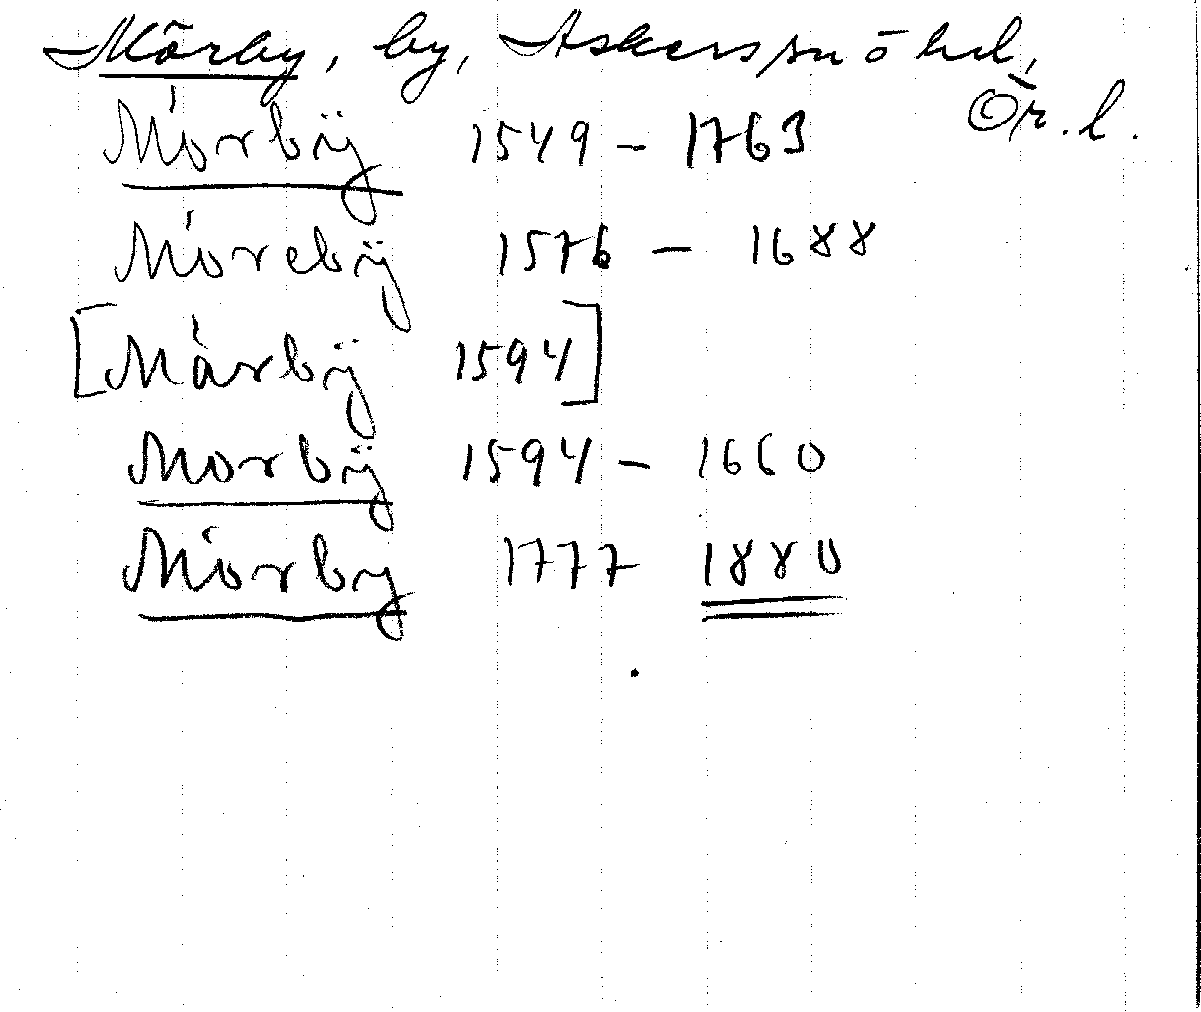 Mörby, by, Askersunds hd,
Ör. l.
Mörbÿ 1549 – 1763
Mörebÿ 1576 – 1688
[Mårbÿ 1594]
Morbÿ 1594 – 1660
Mörby 1777 1880